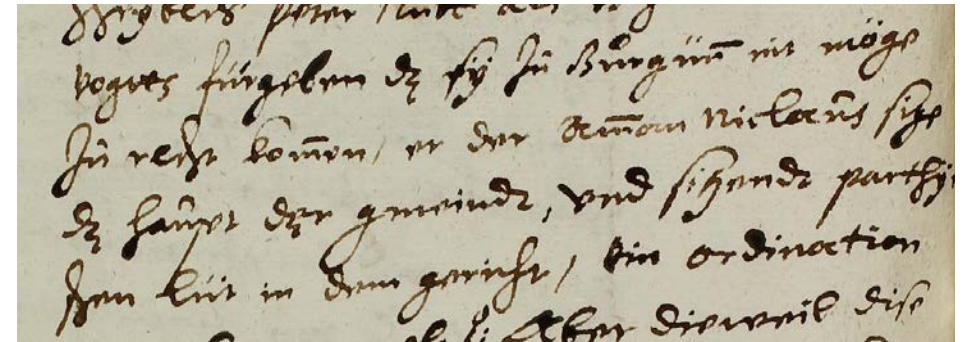 Peter
vogtes fürgeben dz sy Jn Burgunn nit möge
Jn recht komen, er der Aman Niclaus sitze
dz haupt der gmeindt, vnd sitzendt parthy
schen lüt in dem gericht, Ein ordination
Aber dieweil dise